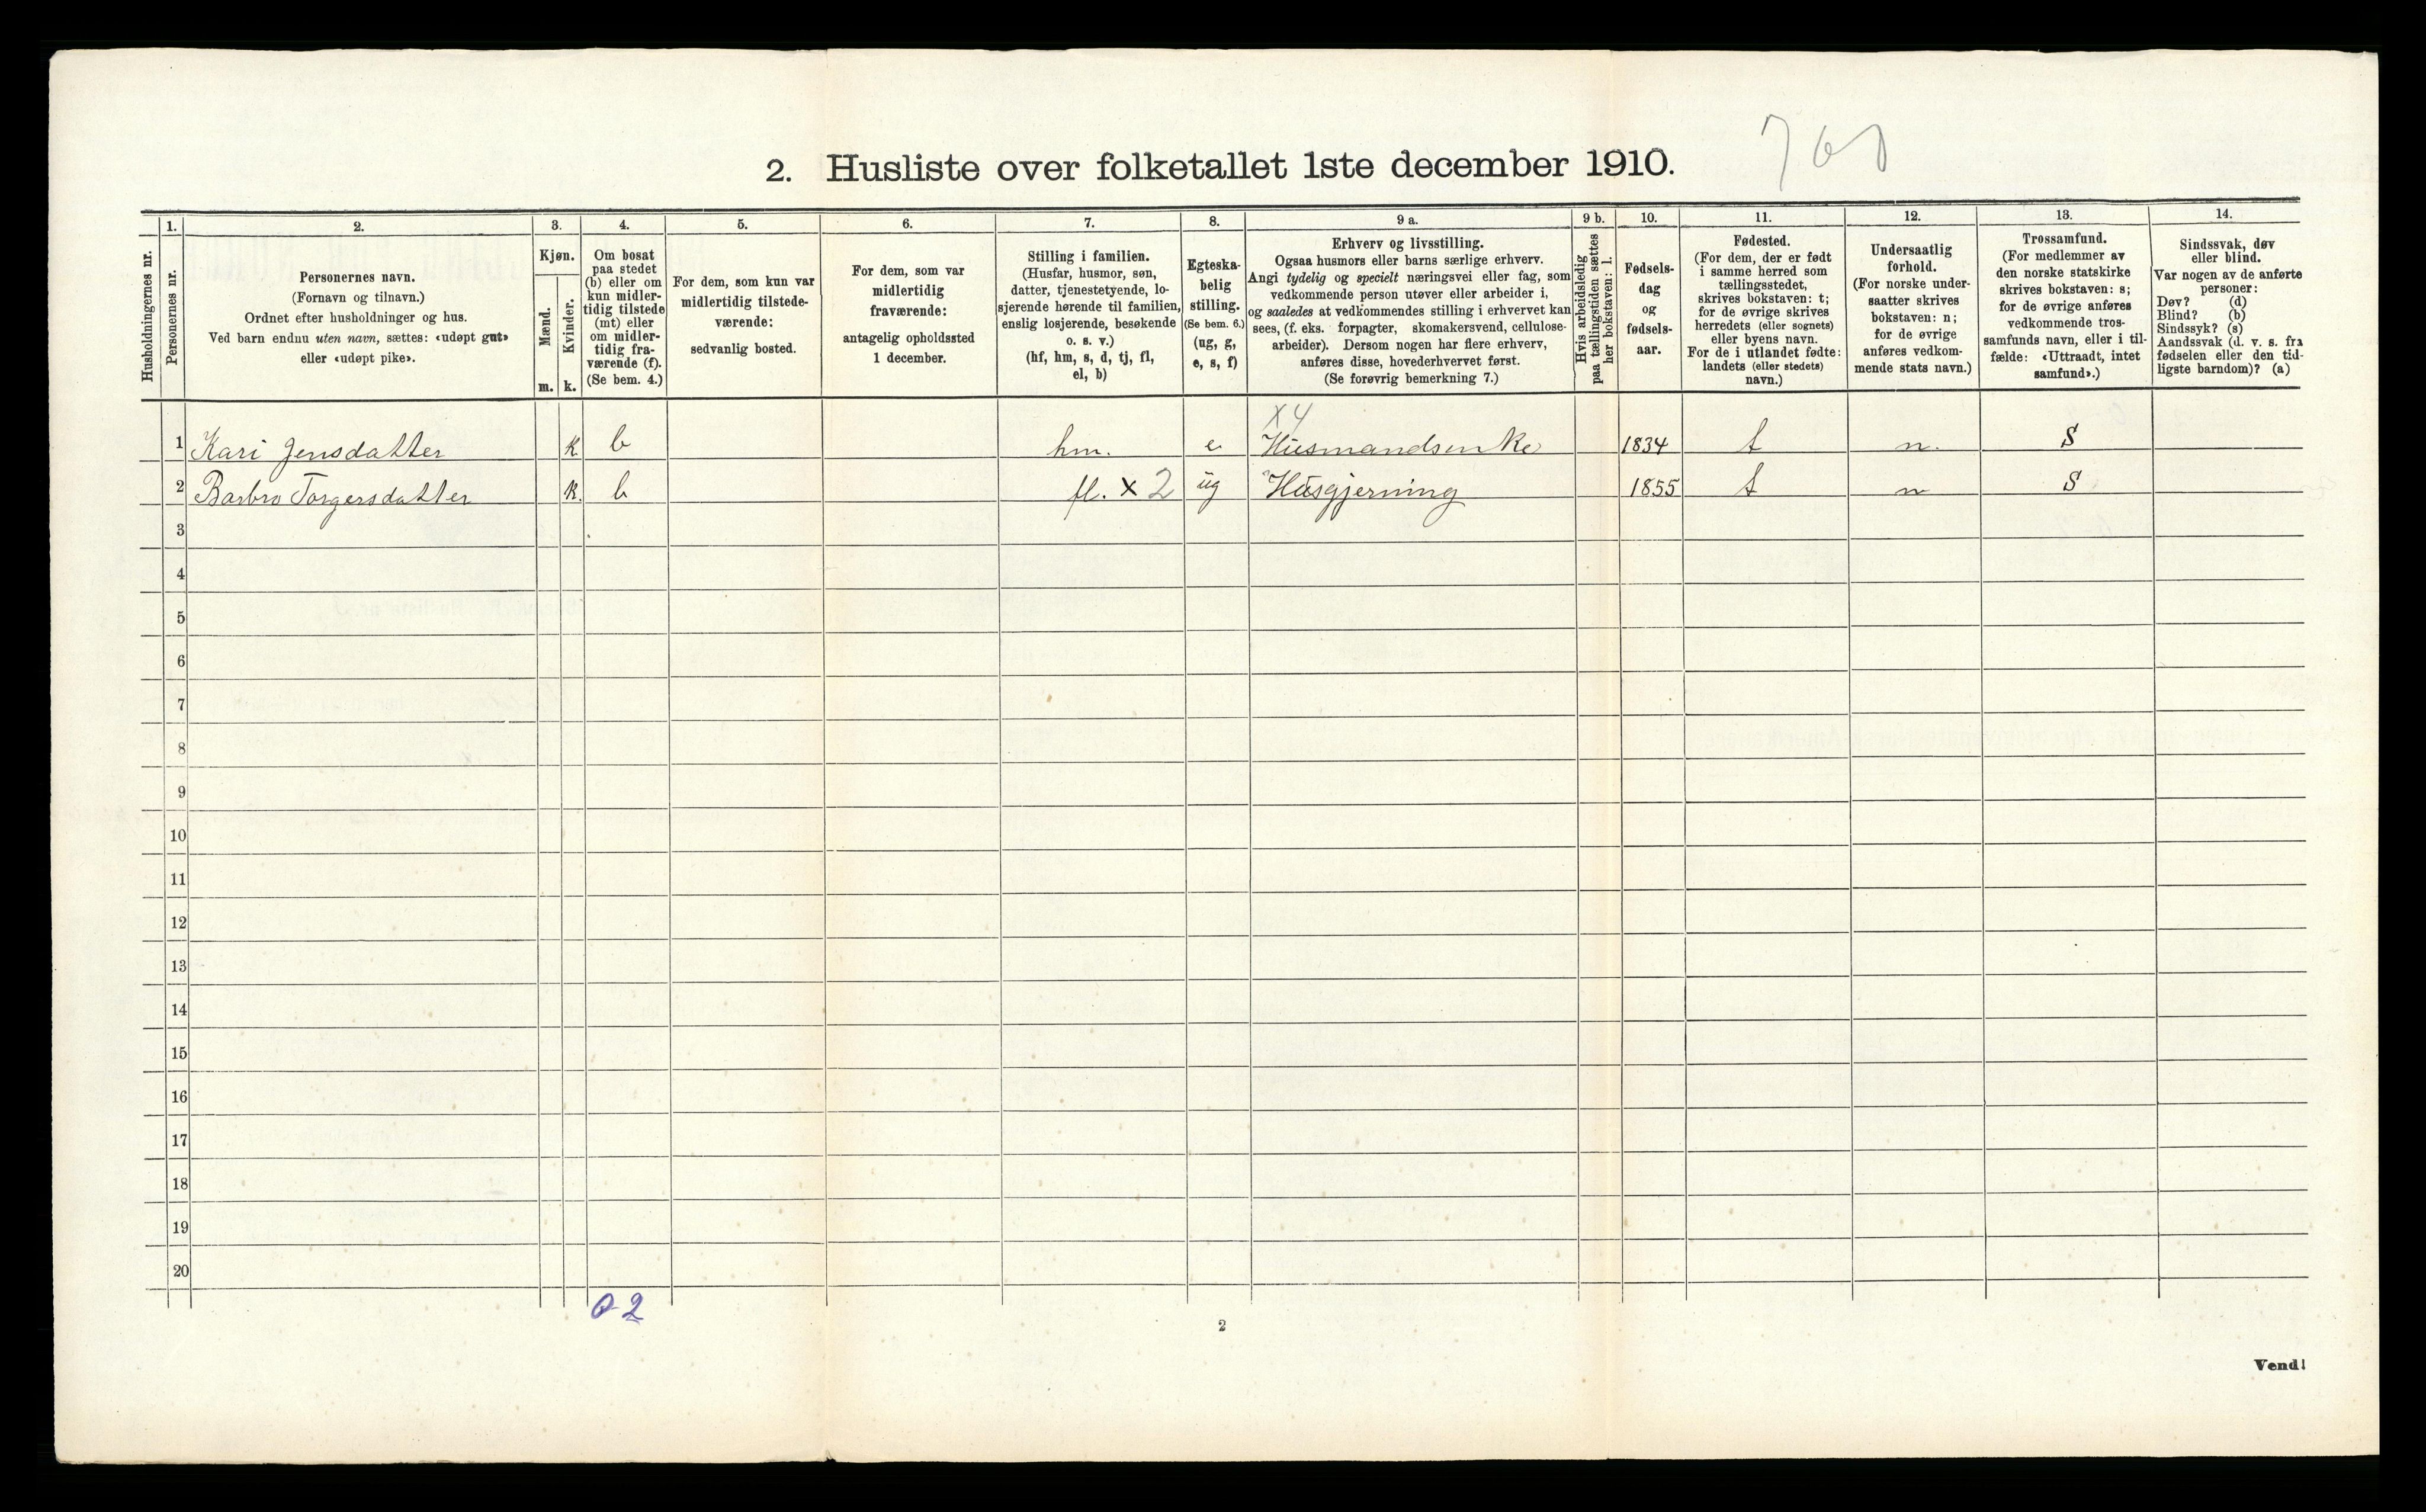 2. Husliste over folketallet 1ste december 1910.
Husholdningernes nr.
1.
Personernes nr.
2.
Personernes navn.
(Fornavn og tilnavn.)
Ordnet efter husholdninger og hus.
Ved barn endnu uten navn, sættes: «udøpt gut»
eller «udøpt pike».
3.
Kjøn.
Mænd.
m.
Kvinder.
k.
4.
Om bosat
paa stedet
(b) eller om
kun midler-
tidig tilstede
(mt) eller
om midler-
tidig fra-
værende (f).
(Se bem. 4.)
5.
For dem, som kun var
midlertidig tilstede-
værende:
sedvanlig bosted.
6.
For dem, som var
midlertidig
fraværende:
antagelig opholdssted
1 december.
7.
Stilling i familien.
(Husfar, husmor, søn,
datter, tjenestetyende, lo-
sjerende hørende til familien,
enslig losjerende, besøkende
o. s. v.)
(hf, hm, s, d, tj, fl,
el, b)
8.
Egteska-
belig
stilling.
(Se bem. 6.)
(ug, g,
e, s, f)
9 a.
Erhverv og livsstilling.
Ogsaa husmors eller barns særlige erhverv.
Angi tydelig og specielt næringsvei eller fag, som
vedkommende person utøver eller arbeider i,
og saaledes at vedkommendes stilling i erhvervet kan
sees, (f. eks. forpagter, skomakersvend, cellulose-
arbeider). Dersom nogen har flere erhverv,
anføres disse, hovederhvervet først.
(Se forøvrig bemerkning 7.)
9 b.
Hvis arbeidsledig
paa tællingstiden sættes
her bokstaven: l.
10.
Fødsels-
dag
og
fødsels-
aar.
11.
Fødested.
(For dem, der er født
i samme herred som
tællingsstedet,
skrives bokstaven: t;
for de øvrige skrives
herredets (eller sognets)
eller byens navn.
For de i utlandet fødte:
landets (eller stedets)
navn.)
12.
Undersaatlig
forhold.
(For norske under-
saatter skrives
bokstaven: n;
for de øvrige
anføres vedkom-
mende stats navn.)
13.
Trossamfund.
(For medlemmer av
den norske statskirke
skrives bokstaven: s;
for de øvrige anføres
vedkommende tros-
samfunds navn, eller i til-
fælde: «Uttraadt, intet
samfund».)
14.
Sindssvak, døv
eller blind.
Var nogen av de anførte
personer:
Døv? (d)
Blind? (b)
Sindssyk? (s)
Aandssvak (d. v. s. fra
fødselen eller den tid-
ligste barndom)? (a)
x4
1 Kari Jensdatter k b hm. e Husmandsenke 1834 t n. S
2 Barbro Torgersdatter k b fl. x 2 ug Husgjerning 1855 t n S
3
4
5
6
7
8
9
10
11
12
13
14
15
16
17
18
19
20
0-2
2
Vend!